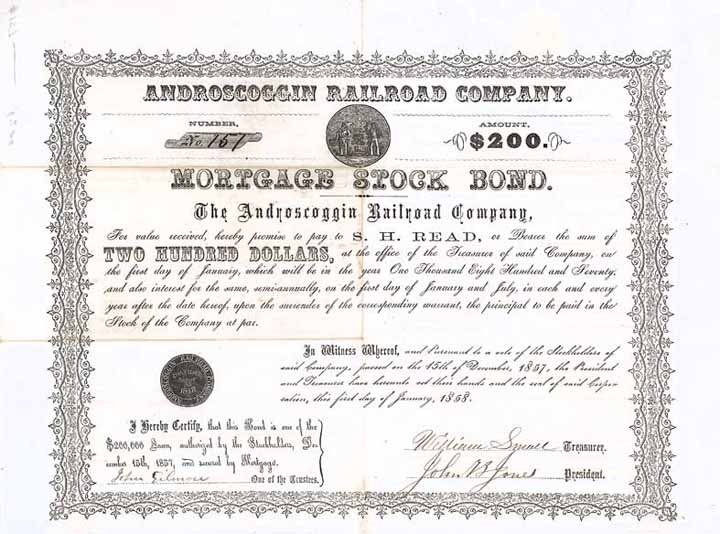 ANDROSCOGGIN RAILROAD COMPANY.
NUMBER, AMOUNT,
No 151 $200.
MORTGAGE STOCK BOND.
The Androscoggin Railroad Company,
For value received, hereby promise to pay to S. H. READ, or Bearer the sum of
TWO HUNDRED DOLLARS, at the office of the Treasurer of said Company, on
the first day of January, which will be in the year One Thousand Eight Hundred and Seventy,
and also interest for the same, semi-annually, on the first day of January and July, in each and every
year after the date hereof, upon the surrender of the corresponding warrant, the principal to be paid in the
Stock of the Company at par.
In Witness Whereof, and Pursuant to a vote of the Stockholders of
said Company, passed on the 15th of December, 1857, the President
and Treasurer have hereunto set their hands and the seal of said Corpo-
ration, this first day of January, 1858.
I Hereby Certify, that this Bond is one of the
$200,000 Loan, authorized by the Stockholders, De-
cember 15th, 1857, and secured by Mortgage.
John Gilmore One of the Trustees.
William Small Treasurer.
John B Jones President.